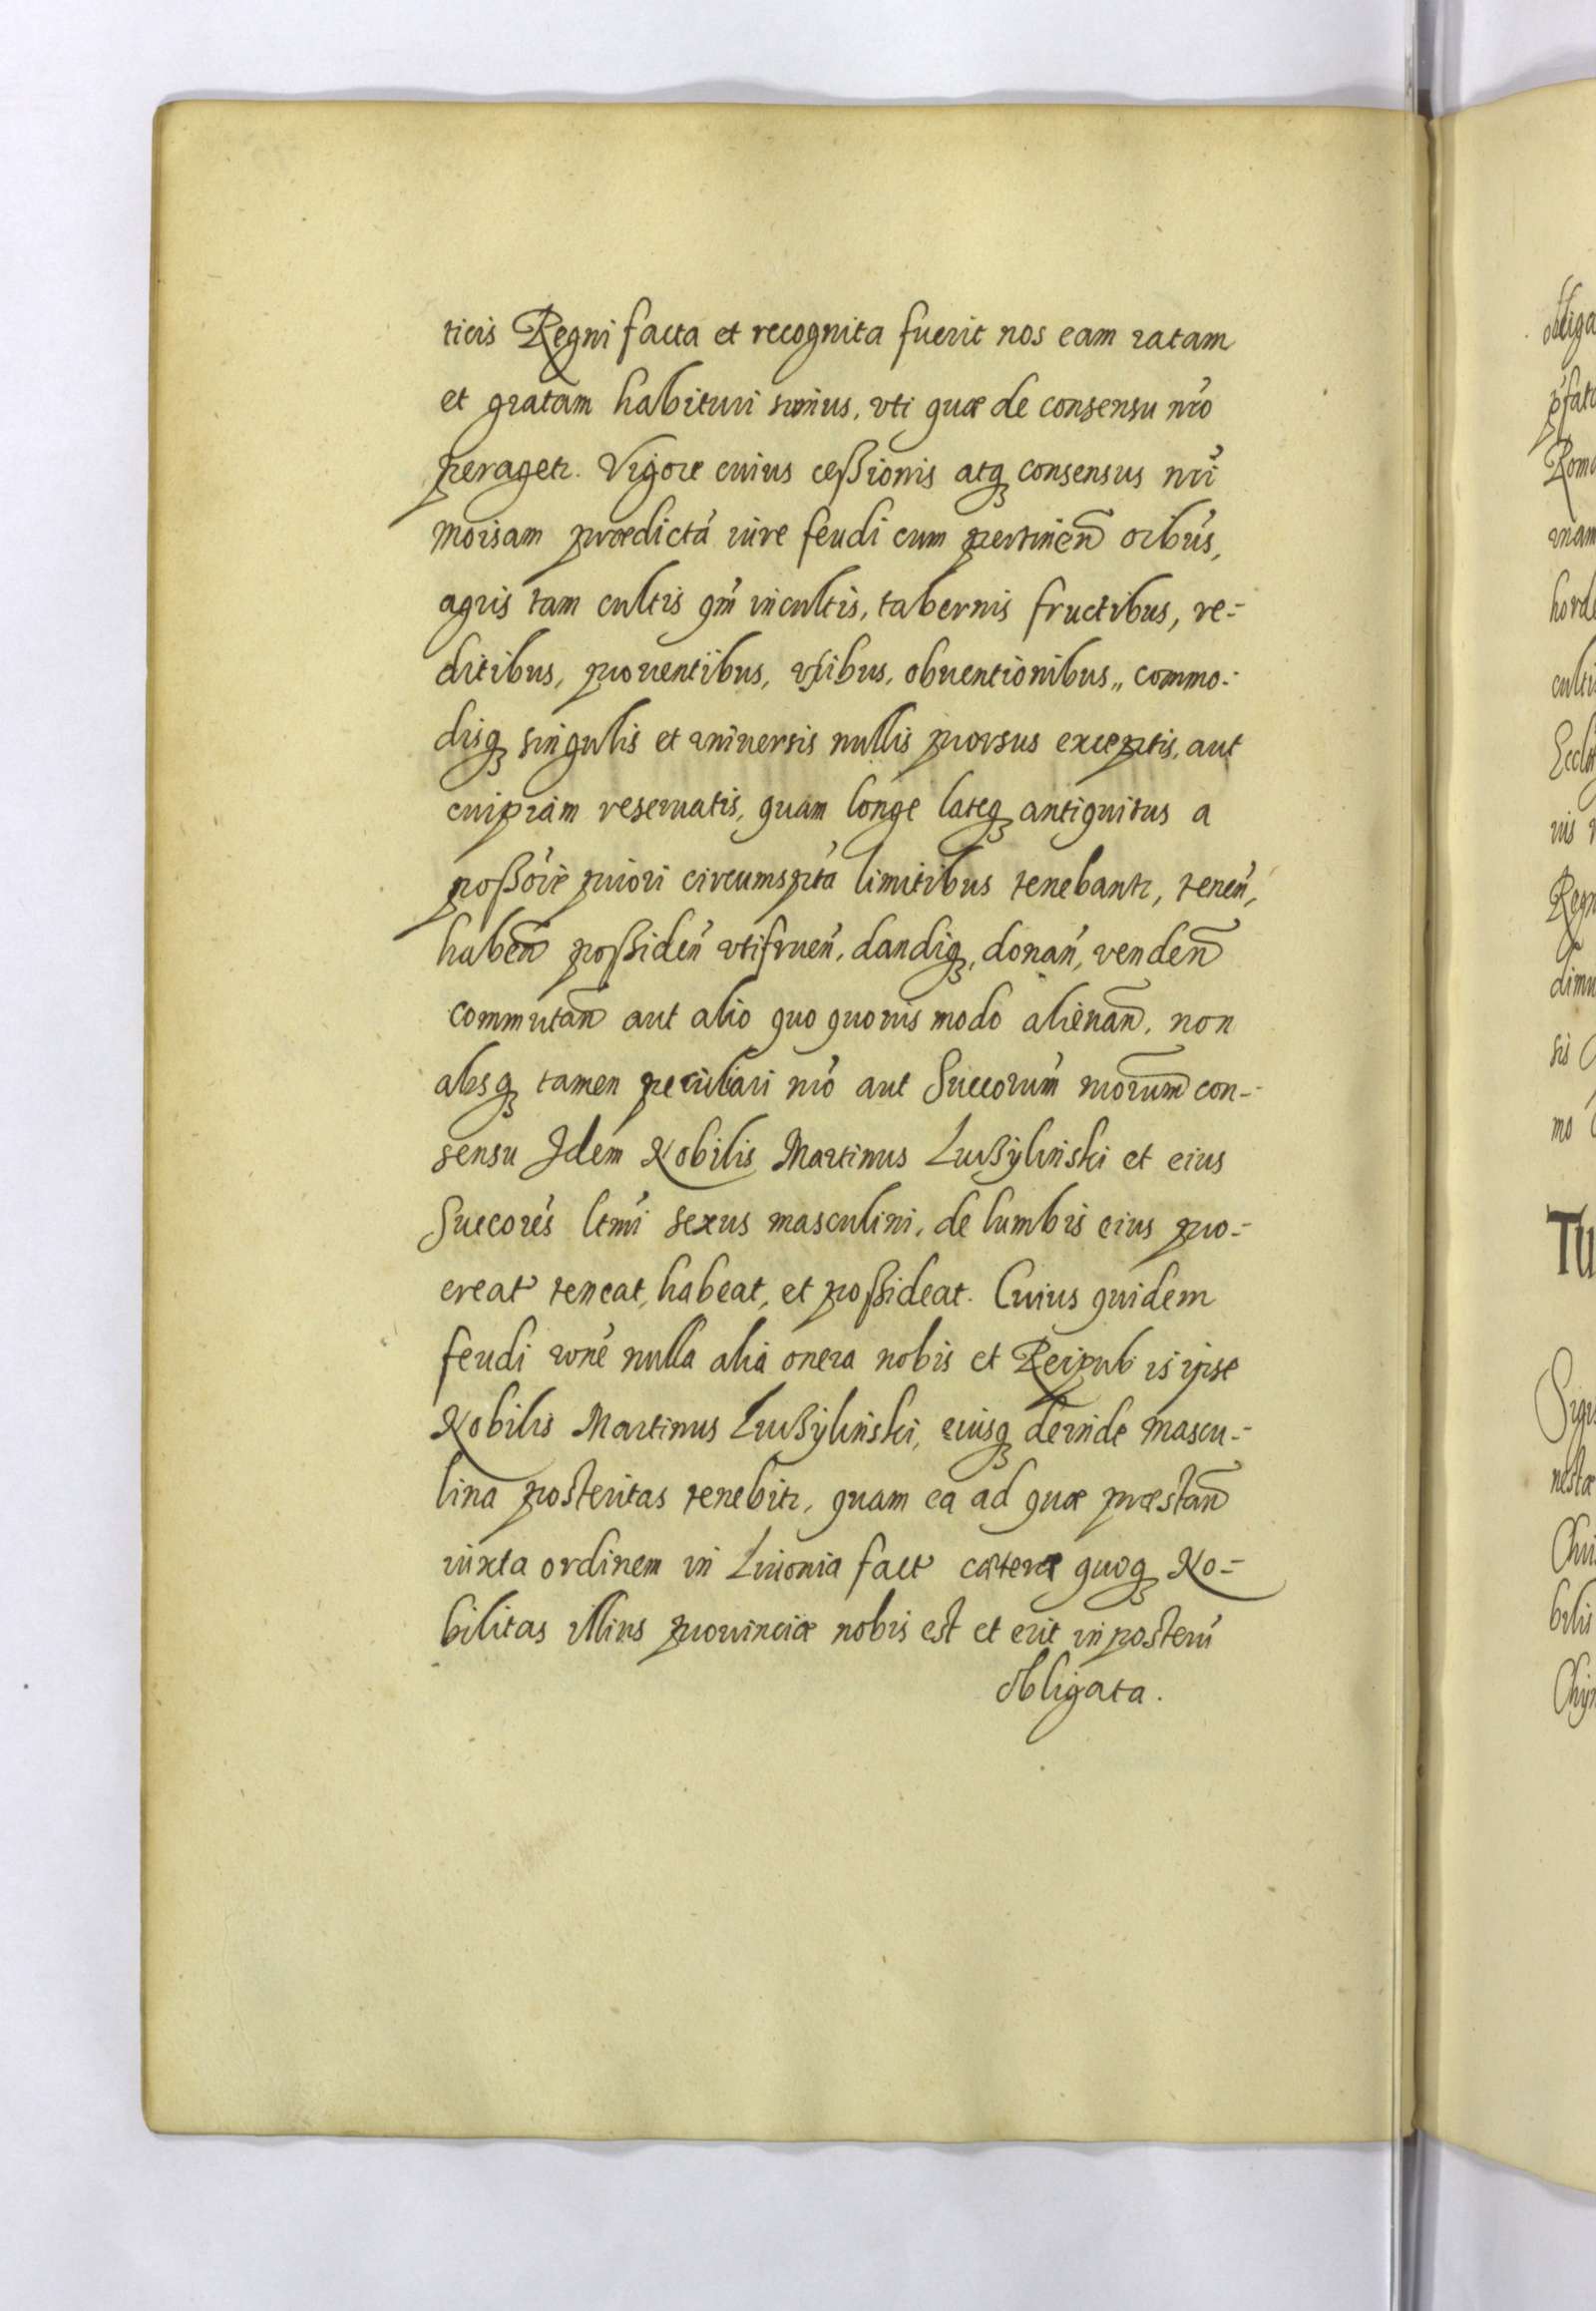 ticis Regni facta et recognita fuerit nos eam ratam
et gratam habituri simus, vti quæ de consensu nr̃o
peragetr. Vigore cuius ceßionis atq₃ consensus nr̃i
moisam prædictã iure feudi cum pertineñ oĩbus,
agris tam cultis qm̃ incultis, tabernis fructibus, re-
ditibus, prouentibus, vsibus, obuentionibus, commo-
disq₃ singulis et vniuersis nullis prorsus exceptis, aut
cuipiam reseruatis, quam longe lateq₃ antiquitus a
poßoře priori circumspta limitibus tenebantr, teneñ,
habeñ poßideñ vtifrueñ, dandiq₃, donañ, vendeñ
commutañ aut alio quo quouis modo alienañ, non
absq₃ tamen peculiari nr̃o aut Succorum̃ nr̃orum con-
sensu Idem Nobilis Martinus Lußÿlinski et eius
Succores̃ ltmĩ sexus masculini, de lumbis eius pro-
creat teneat, habeat, et poßideat. Cuius quidem
feudi rone᷈ nulla alia onera nobis et Reipub is ipse
Nobilis Martinus Lußÿlinski, eiusq₃ deinde mascu-
lina posteritas tenebitr, quam ea ad quæ præstañ
iuxta ordinem in Liuonia fact cætera quoq₃ No-
bilitas illius prouinciæ nobis est et erit in posterũ
obligata.